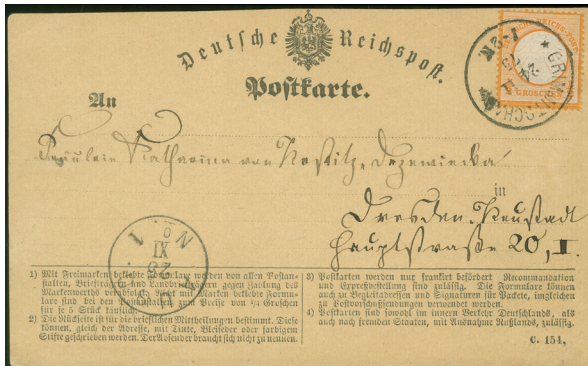 Deutsche Reichspost.
Postkarte.
An
Fräulein Katharina von Nostitz,
in
Dresden. Neustadt
Hauptstraße 20, I.
GROSCHEN
1) Mit Freimarken beklebte Formulare werden von allen Postan-
stalten, Briefträgern und Landbriefträgern gegen Zahlung des
Markenwerths verabfolgt. Nicht mit Marken beklebte Formu-
lare sind bei den Postanstalten zum Preise von ¼ Groschen
für je 5 Stück käuflich.
2) Die Rückseite ist für die brieflichen Mittheilungen bestimmt. Diese
können, gleich der Adresse, mit Tinte, Bleifeder oder farbigem
Stifte geschrieben werden. Der Absender braucht sich nicht zu nennen.
3) Postkarten werden nur frankirt befördert. Recommandation
und Expreßbestellung sind zulässig. Die Formulare können
auch zu Begleitadressen und Signaturen für Packete, ingleichen
zu Postvorschußsendungen verwendet werden.
4) Postkarten sind sowohl im innern Verkehr Deutschlands, als
auch nach fremden Staaten, mit Ausnahme Rußlands, zulässig.
C. 154.